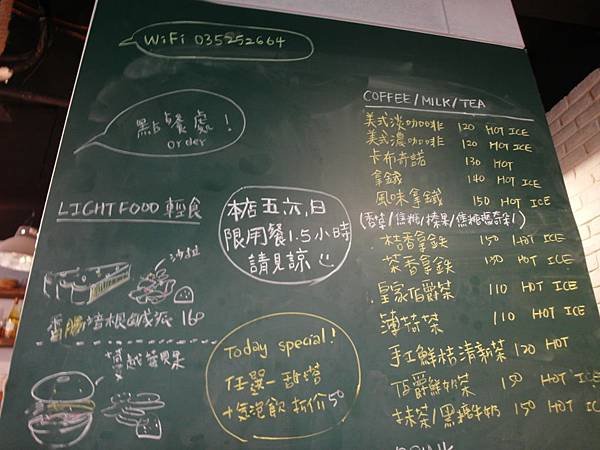 WiFi 035252664
點餐處!
order
LIGHT FOOD 輕食
沙拉
香腸培根鹹派 160
蔓越莓貝果
本店五.六.日
限用餐1.5小時
請見諒
Today special!
任選一甜塔
+氣泡飲 折價50
COFFEE/MILK/TEA
美式淡咖啡 120 HOT ICE
美式濃咖啡 120 HOT ICE
卡布奇諾 130 HOT
拿鐵 140 HOT ICE
風味拿鐵 150 HOT ICE
(香草/焦糖/榛果/焦糖瑪奇朵)
桔香拿鉄 150 HOT ICE
茶香拿鉄 150 HOT ICE
皇家伯爵茶 110 HOT ICE
薄荷茶 110 HOT ICE
手工鮮桔清新茶 120 HOT
伯爵鮮奶茶 150 HOT ICE
抹茶/黑糖牛奶 150 HOT ICE
DRINK